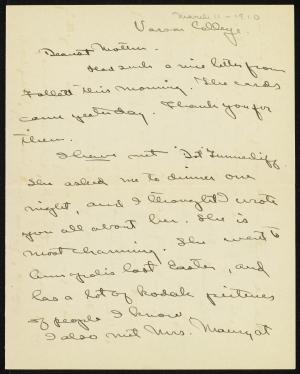 March 11-1910
Vassar College.
Dearest Mother.
Had such a nice letter from
Follett this morning. The cards
came yesterday. Thank you for
them.
I have met "Dot"
She asked me to dinner one
night, and I thought I wrote
you all about her. She is
most charming. She went to
Annapolis last Easter, and
has a lot of kodak pictures
of people I know.
I also met Mrs.